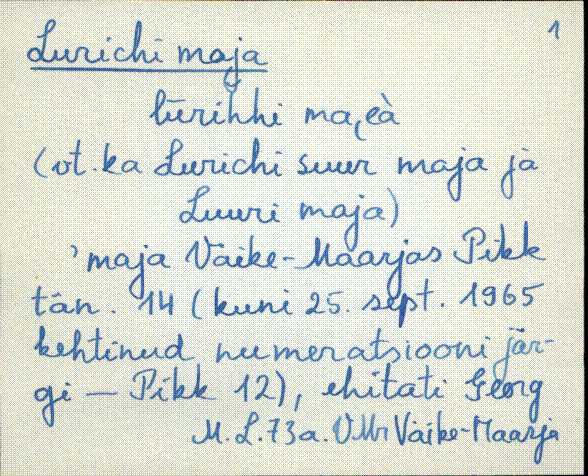 1
Lurichi maja
lūrihhi majà
(vt. ka Lurichi suur maja ja
Luuri maja)
'maja Väike-Maarjas Pikk
tän. 14 (kuni 25. sept. 1965
kehtinud numeratsiooni jär-
gi — Pikk 12), ehitati Georg
M. L. 73a. VMr Väike-Maarja